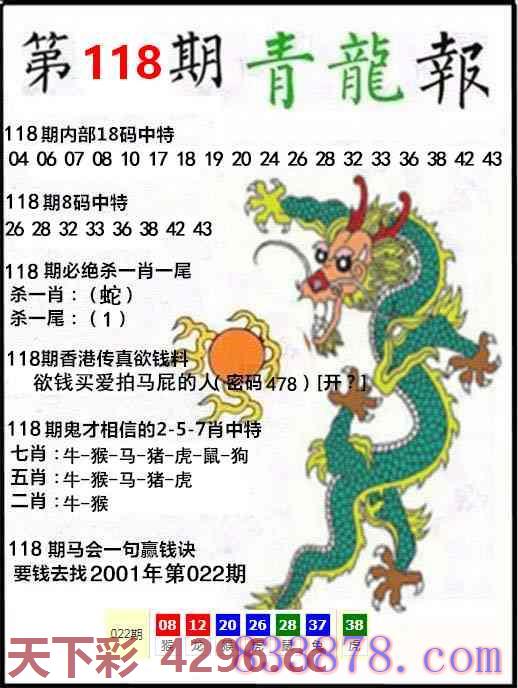 第118期青龍報
118期内部18码中特
04 06 07 08 10 17 18 19 20 24 26 28 32 33 36 38 42 43
118期8码中特
26 28 32 33 36 38 42 43
118期必绝杀一肖一尾
杀一肖：（蛇）
杀一尾：（1）
118期香港传真欲钱料
欲钱买爱拍马屁的人(密码478)[开？]
118期鬼才相信的2-5-7肖中特
七肖：牛-猴-马-猪-虎-鼠-狗
五肖：牛-猴-马-猪-虎
二肖：牛-猴
118期马会一句赢钱诀
要钱去找2001年第022期
022期 08 12 20 26 28 37 38
猴 龙 猴 虎 鼠 兔 虎
天下彩 4296.cc
838878.com